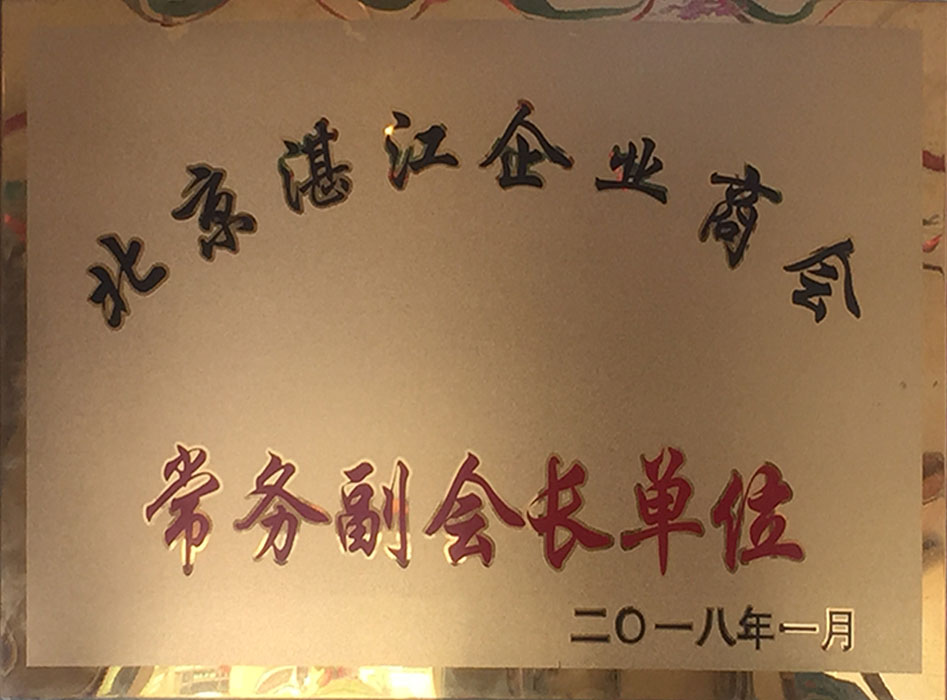 北京湛江企业商会
常务副会长单位
二〇一八年一月